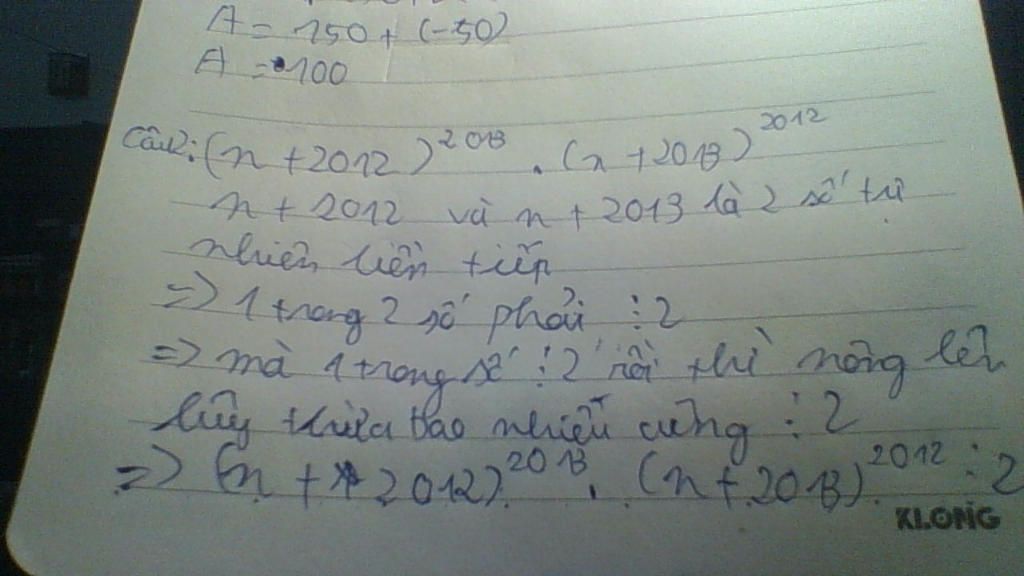 A = 150 + (-50)
A = 100
Câu2: (n + 2012)^2013 . (n + 2013)^2012
n + 2012 và n + 2013 là 2 số tự
nhiên liên tiếp
=> 1 trong 2 số phải ⋮ 2
=> mà 1 trong số ⋮ 2 rồi thì nâng lên
lũy thừa bao nhiêu cũng ⋮ 2
=> (n + 2012)^2013 . (n + 2013)^2012 ⋮ 2
KLONG